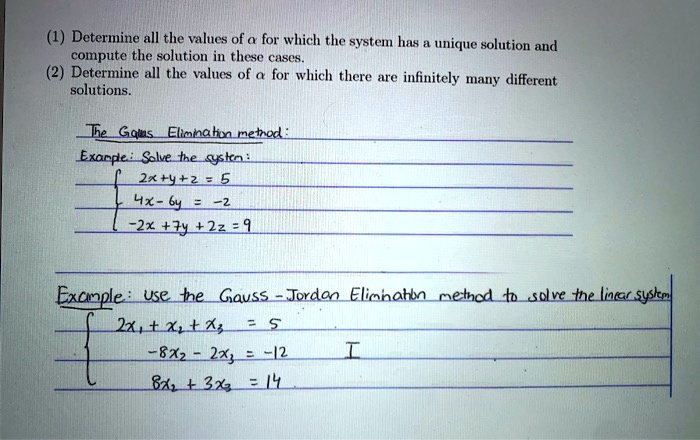 (1) Determine all the values of α for which the system has a unique solution and
compute the solution in these cases.
(2) Determine all the values of α for which there are infinitely many different
solutions.
The Gauss Elimination method:
Example: Solve the system:
2x +y+z = 5
4x - 6y = -2
-2x +7y +2z = 9
Example: use the Gauss - Jordan Elimination method to solve the linear system
2x₁ + x₂ + x₃ = 5
-8x₂ - 2x₃ = -12
8x₂ + 3x₃ = 14